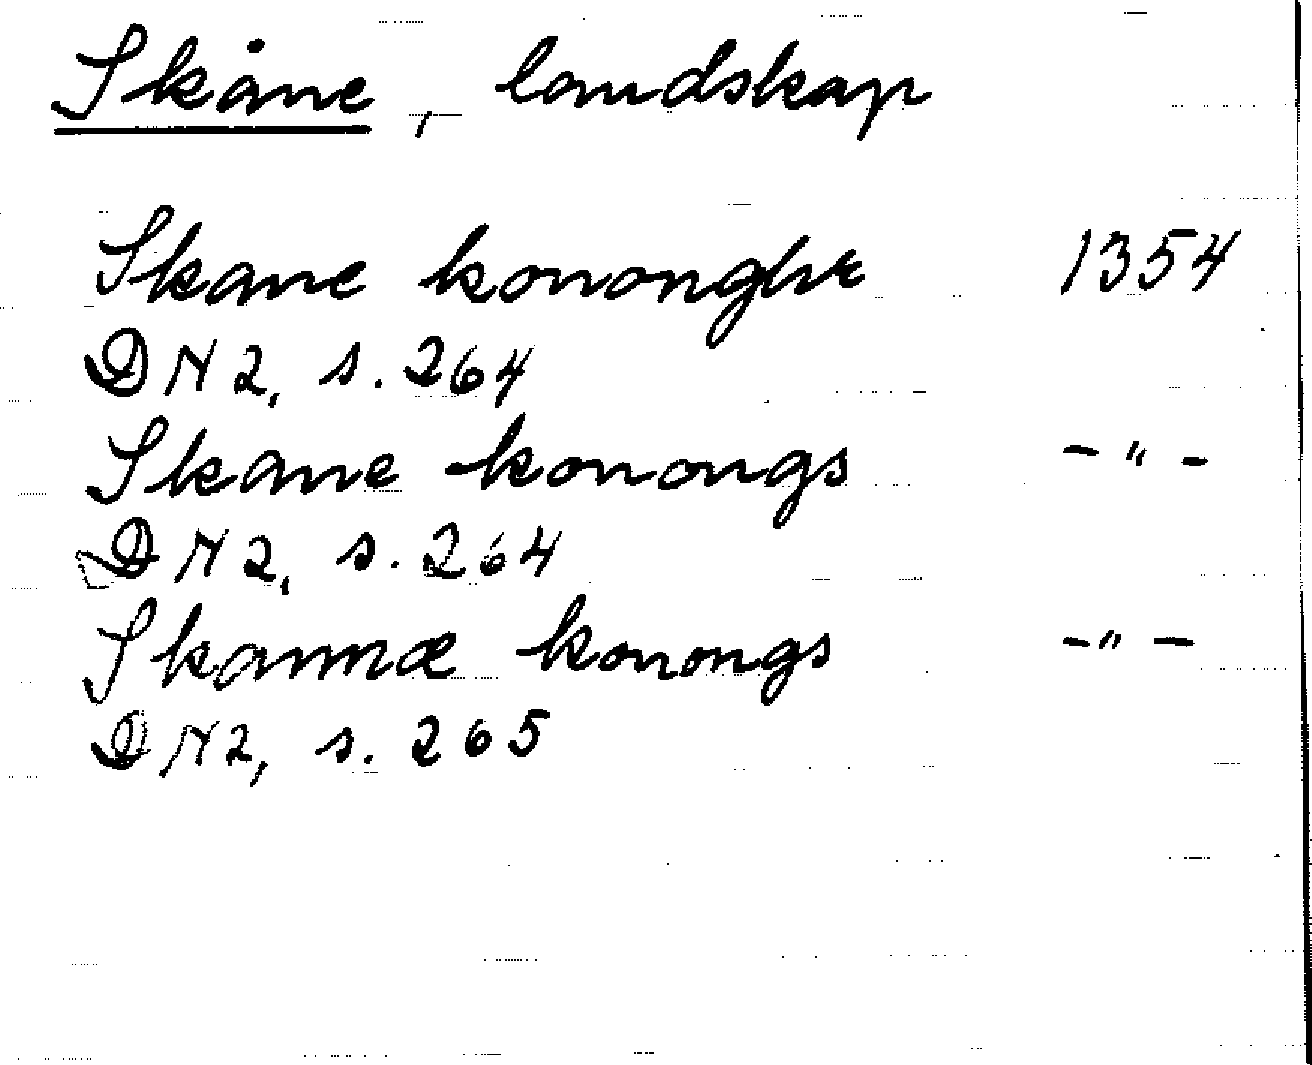 Skåne, landskap
Skane kononghr 1354
DN2, s. 264
Skane konongs -"-
DN2, s. 264
Skannæ konongs -"-
DN2, s. 265